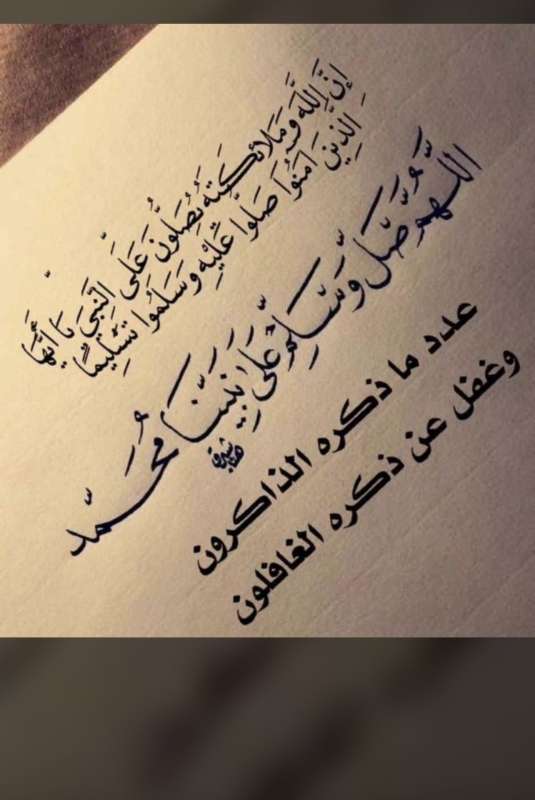 إِنَّ اللَّهَ وَمَلَائِكَتَهُ يُصَلُّونَ عَلَى النَّبِيِّ يَا أَيُّهَا
الَّذِينَ آمَنُوا صَلُّوا عَلَيْهِ وَسَلِّمُوا تَسْلِيمًا
اللَّهُمَّ صَلِّ وَسَلِّمْ عَلَى نَبِيِّنَا مُحَمَّد
عدد ما ذكره الذاكرون
وغفل عن ذكره الغافلون